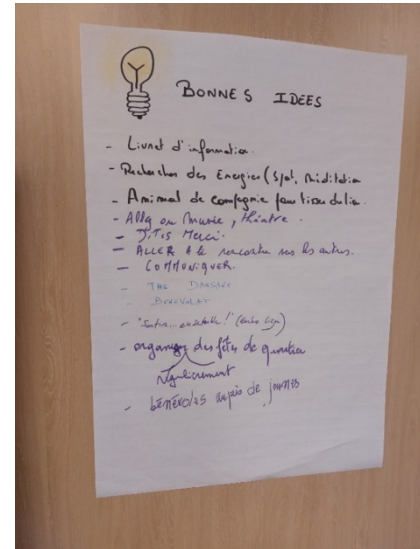 BONNES IDEES
- Livret d'information.
- Recherches des Energies (Spot, Méditation
- Animal de compagnie pour tisser du lien.
- Aller au musée, théatre.
- DITES Merci.
- ALLER A la rencontre vers les autres.
- COMMUNIQUER.
- THE DANSANT
- BENEVOLAT
- "Sortir... ensemble!" (
- organiser des fêtes de quartier
régulièrement
- bénévoles auprès de jeunes